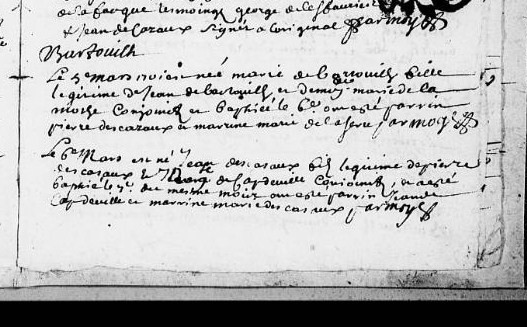 de la barque tesmoings george de lesbauvier
& Jean de cazaux signés a l'original par moy
Bartouilh
Le 5e mars 1701 est née marie de bartouilh fille
legitime de Jean de bartouilh et demoy. marie de la
mothe Conjoints et baptisée le 6e ont esté parrin
pierre descazaux et marrine marie de laserre par moy
Le 6e Mars est né Jean descasaux fils legitime de pierre
des casaux & de Capdeville Conjoints, & a esté
baptisé le 7e du mesme mois ont esté parrin Jean de
Capdeville et marrine marie descasaux, par moy